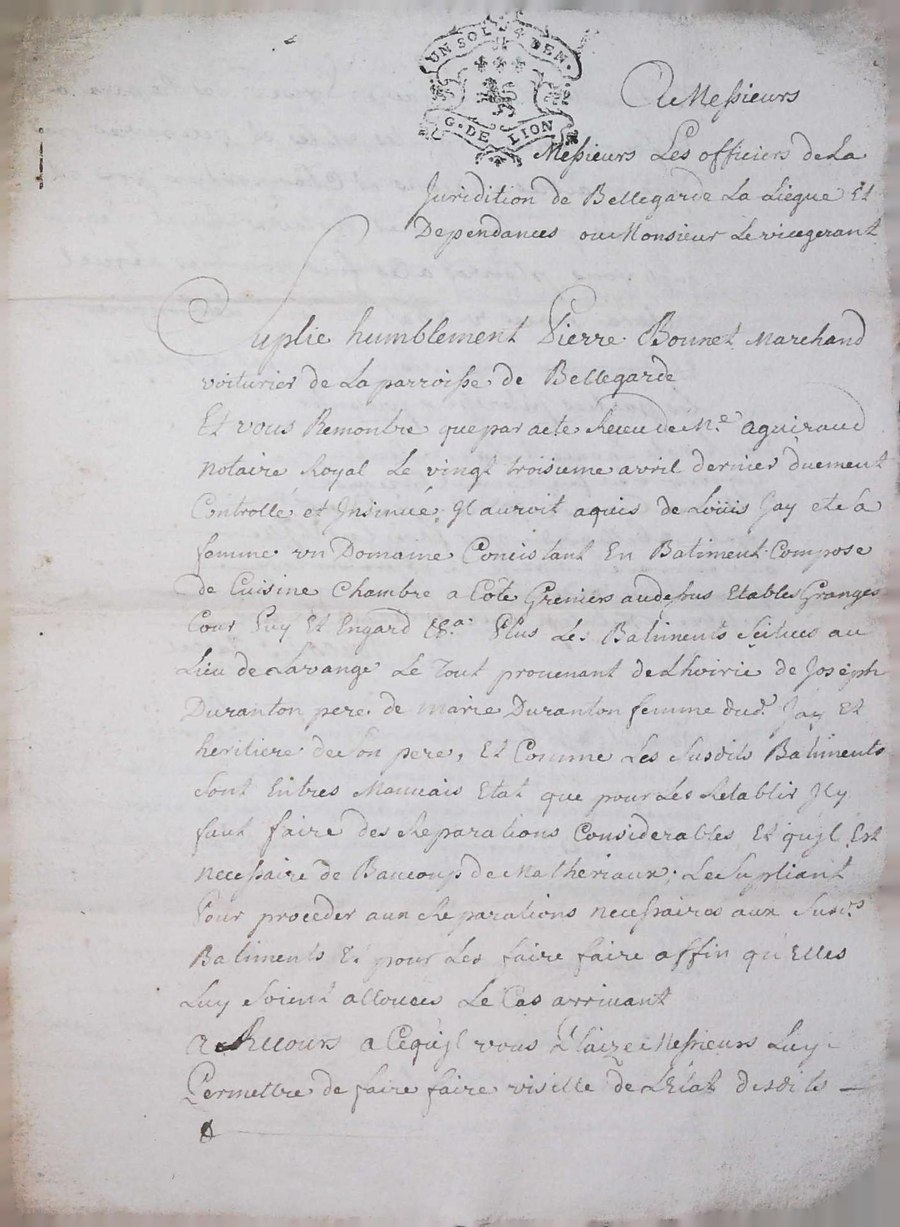 UN SOL 4 DEN.
G. DE LION
A Messieurs
Messieurs Les officiers de La
Juridition de Bellegarde La Liegue Et
Dependances ou Monsieur Le vicegerant
Suplie humblement Pierre Bonnet Marchand
voiturier de La parroisse de Bellegarde
Et vous Remontre que par acte Receu de Me aguiraud
notaire Royal Le vingt troisieme avril dernier duement
Controllé et Insinué, Il auroit aquis de Loüis Jay et La
femme un Domaine Concistant En Batiment Compose
de Cuisine Chambre a Côté Greniers au dessus Etables Granges
Cour Puy Et Engard &a. Plus Les Batiments Scitues au
Lieu de Lavange Le Tout provenant de Lhoirie de Joseph
Duranton pere de marie Duranton femme dudt Jay Et
heritiere de son pere, Et Comme Les Susdits Batiments
Sont En tres Mauvais Etat que pour Les Retablir Il y
faut faire des Reparations Considerables Et qu'il Est
necessaire de Baucoup de Matheriaux, Le Supliant
Pour proceder aux Reparations necessaires aux Susds
Batiments Et pour Les faire faire affin qu'Elles
Luy Soient allouées Le Cas arrivant
a Recours a Ce qu'il vous Plaise Messieurs Luy
Permettre de faire faire visitte de L'Etat desdits